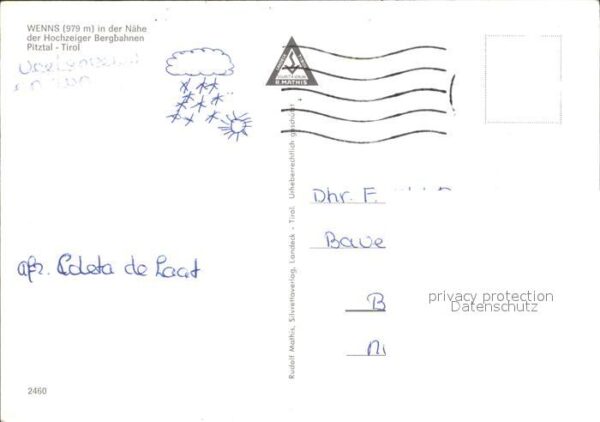 WENNS (979 m) in der Nähe
der Hochzeiger Bergbahnen
Pitztal - Tirol
R. MATHIS
Rudolf Mathis, Silvrettaverlag, Landeck - Tirol. Urheberrechtlich geschützt
Dhr. F.
Baue
B
Ni
afz. Coleta de Laat
privacy protection
Datenschutz
2460